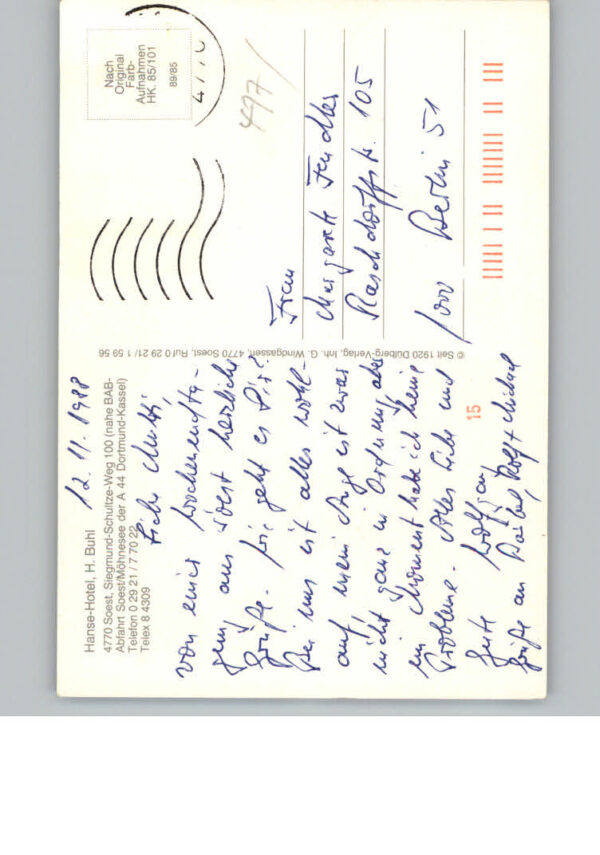 Hanse-Hotel, H. Buhl
4770 Soest, Siegmund-Schultze-Weg 100 (nahe BAB-
Abfahrt Soest/Möhnesee der A 44 Dortmund-Kassel)
Telefon 0 29 21 / 7 70 22
Telex 8 4309
12. 11. 1988
Liebe Mutti,
von einer Wochenendta-
gung aus Soest herzliche
Grüße. Wie geht es Dir?
Bei uns ist alles wohl-
auf, mein Auge ist zwar
nicht ganz in Ordnung, aber
im Moment habe ich keine
Probleme. Alles Liebe und
Gute Wolfgang
Grüße an Bärbel, Rolf + Michael
© Seit 1920 Dülberg-Verlag, Inh. G. Windgassen, 4770 Soest, Ruf 0 29 21 / 1 59 56
Nach
Original
Farb-
Aufnahmen
HK. 85/101
89/85
4770
497/
Frau
Margarete Fendler
Raschdorffstr. 105
1000 Berlin 51
15